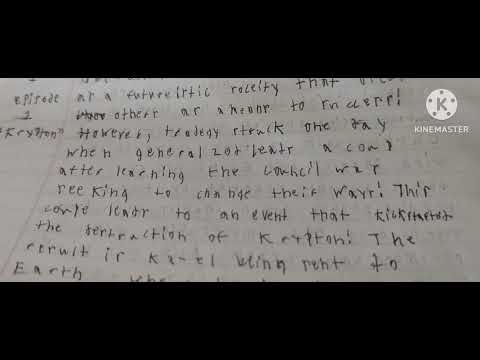 episode as a futureistic soceity that
1 others as a means to success!
"Krypton" However, tradegy struck one day
when general zod leads a coup
after learning the council was
seeking to change their ways! This
coupe leads to an event that kickstarted
the destruction of Krypton! The
result is Ka-el being sent to
Earth
K
KINEMASTER